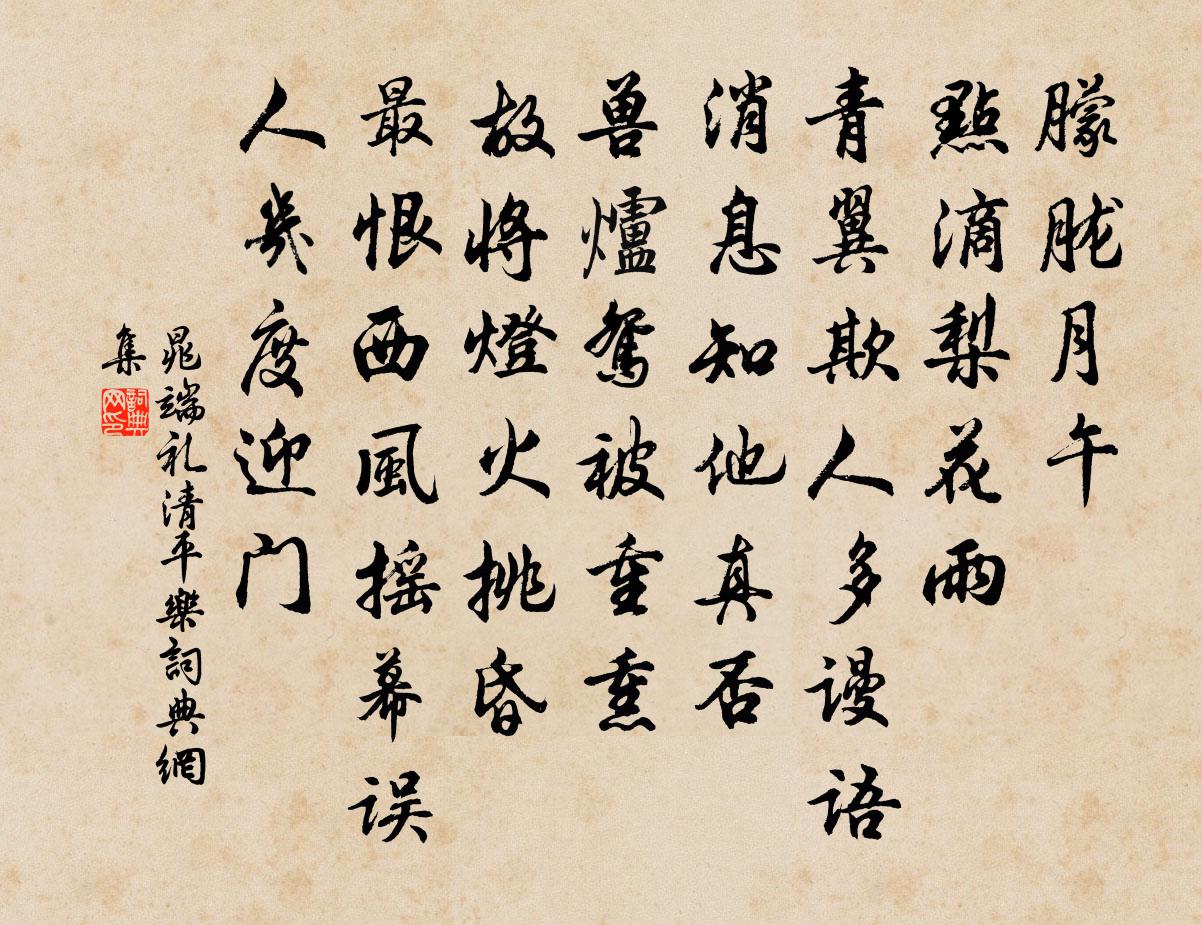 朦胧月午
點滴梨花雨
青翼欺人多谩语
消息知他真否
兽爐鴛被重熏
故将燈火挑昏
最恨西風摇幕误
人幾度迎门
晁端礼清平樂詞典網
集
詞典
网印